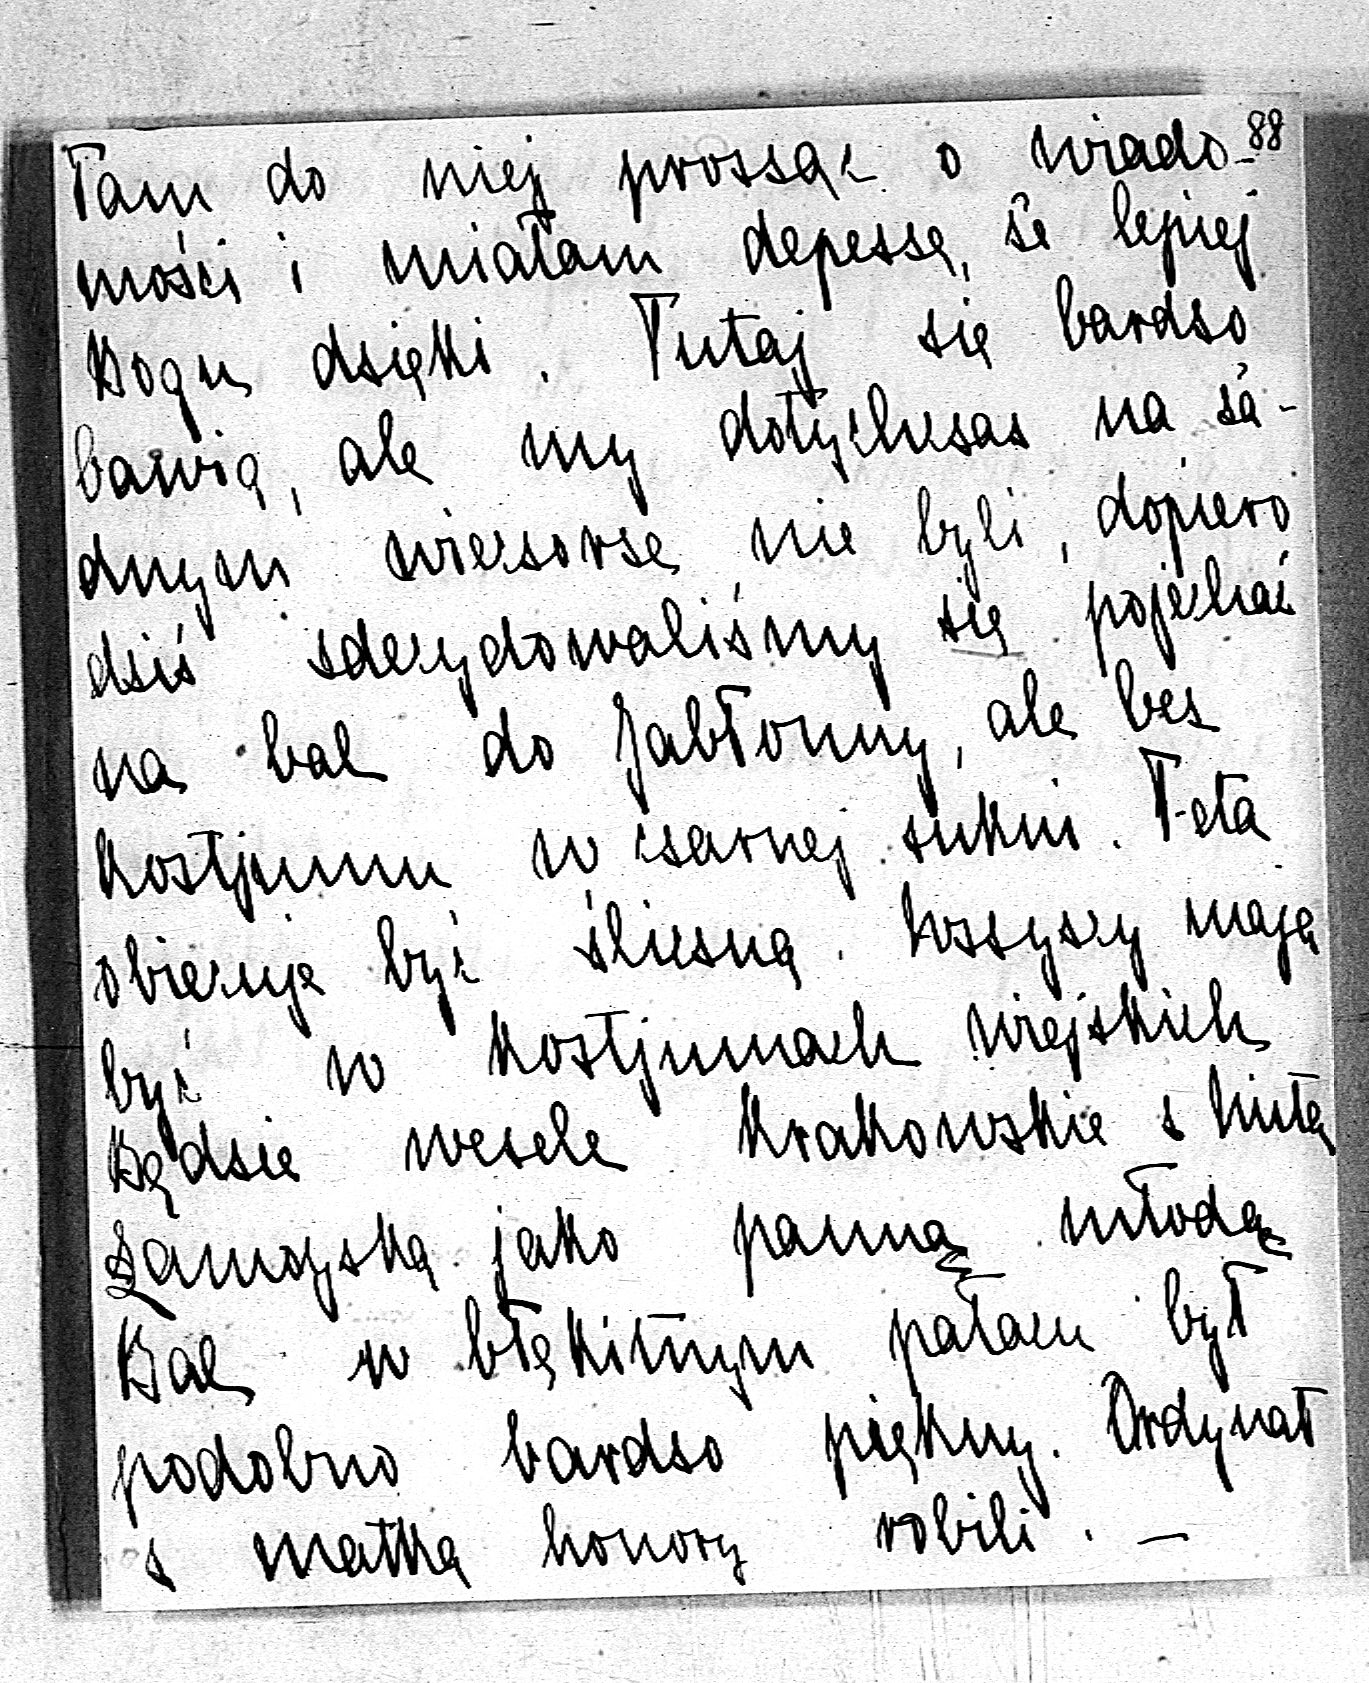 88
łam do niej prosząc o wiado-
mości i miałam depeszę, że lepiej
Bogu dzięki. Tutaj się bardzo
bawią, ale my dotychczas na ża-
dnym wieczorze nie byli, dopiero
dziś zdecydowaliśmy się pojechać
na bal do Jabłonny, ale bez
kostjumu w czarnej sukni. Teta
obiecuje być śliczną. Wszyscy mają
być w kostjumach wiejskich
Będzie wesele krakowskie z
Zamoyską jako panną młodą
Bal w błękitnym pałacu był
podobno bardzo piękny. Ordynat
z matką honory robili. —